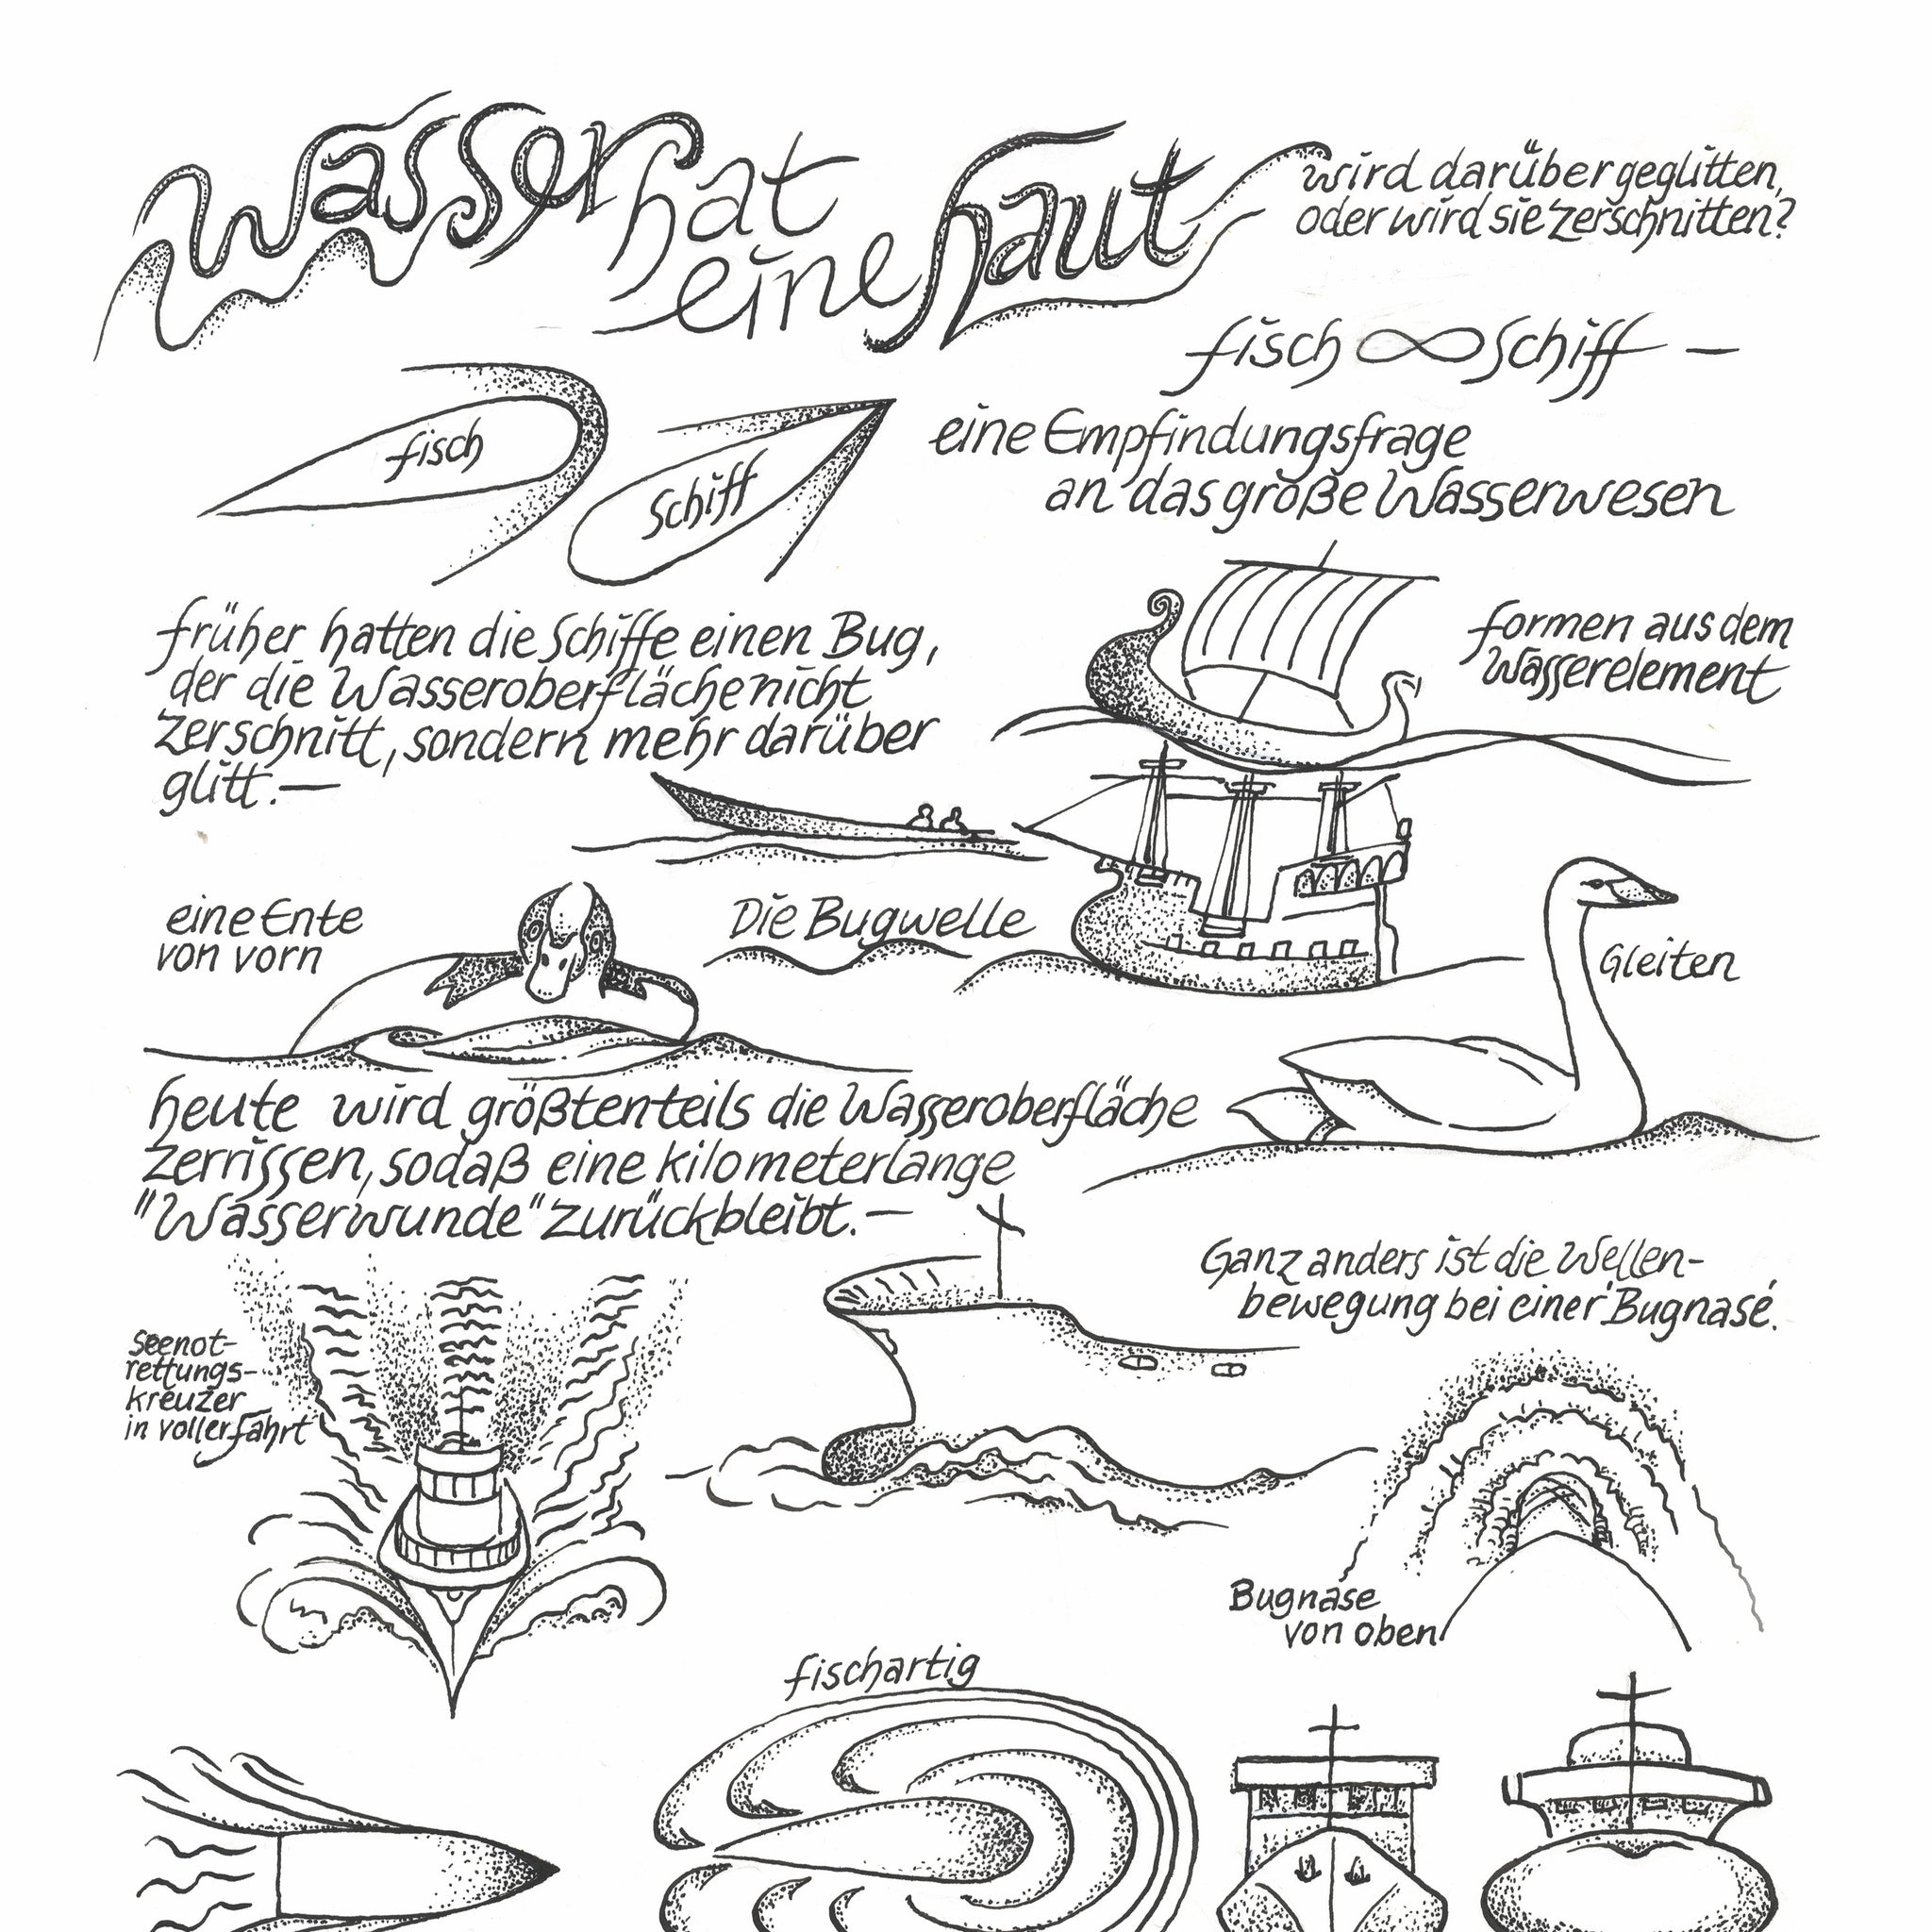 Wasser hat
eine Haut
wird darüber geglitten,
oder wird sie zerschnitten?
fisch ∞ Schiff —
eine Empfindungsfrage
an das große Wasserwesen
fisch
Schiff
früher hatten die Schiffe einen Bug,
der die Wasseroberfläche nicht
zerschnitt, sondern mehr darüber
glitt.—
formen aus dem
Wasserelement
eine Ente
von vorn
Die Bugwelle
Gleiten
heute wird größtenteils die Wasseroberfläche
zerrissen, sodaß eine kilometerlange
"Wasserwunde" zurückbleibt.—
Seenot-
rettungs-
kreuzer
in voller fahrt
Ganz anders ist die Wellen-
bewegung bei einer 'Bugnase'.
Bugnase
von oben
fischartig